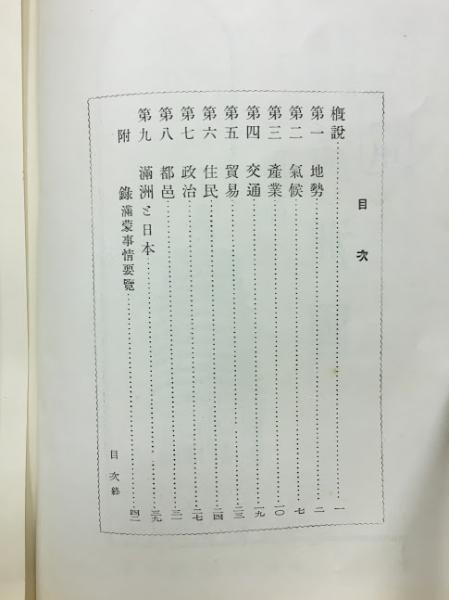 目次
概説……一
第一 地勢……二
第二 氣候……七
第三 產業……一〇
第四 交通……一九
第五 貿易……二三
第六 住民……二四
第七 政治……二七
第八 都邑……三一
第九 滿洲と日本……三九
附錄 滿蒙事情要覽……四二
目次終